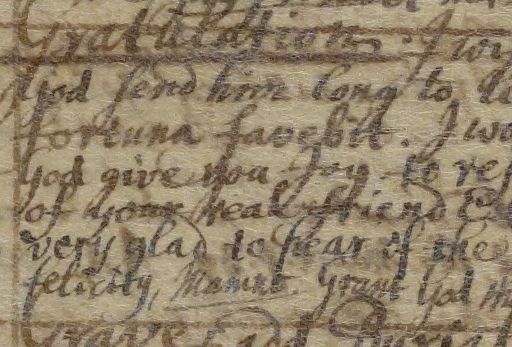 Gratulation I wi
God send him long to li
fortuna favebit. I wo
god give you Joy to re
of your real friend
very glad to hear of the
felicity, Grant God th
Grave